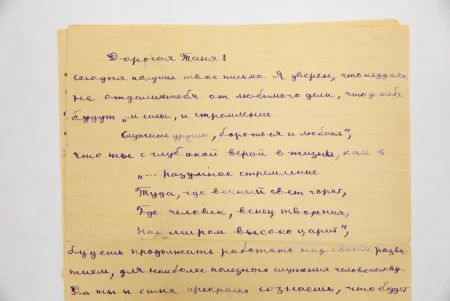 Дорогая Таня!
сегодня получил твое письмо. Я уверен, что неудача
не отдалит тебя от любимого дела, что у тебя
будут „и силы, и стремленье
Служить другим, бороться и любить“,
что ты с глубокой верой в жизнь, как в
„... разумное стремление
Туда, где вечный свет горит,
Где человек, венец творения,
Над миром высоко царит“,
будешь продолжать работать над своим разви-
тием, для наиболее полезного служения человечеству.
Да ты и сама прекрасно сознаешь, что будет